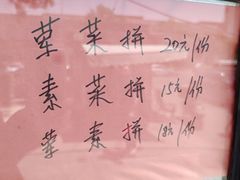 荤菜拼 20元/份
素菜拼 15元/份
荤素拼 18元/份